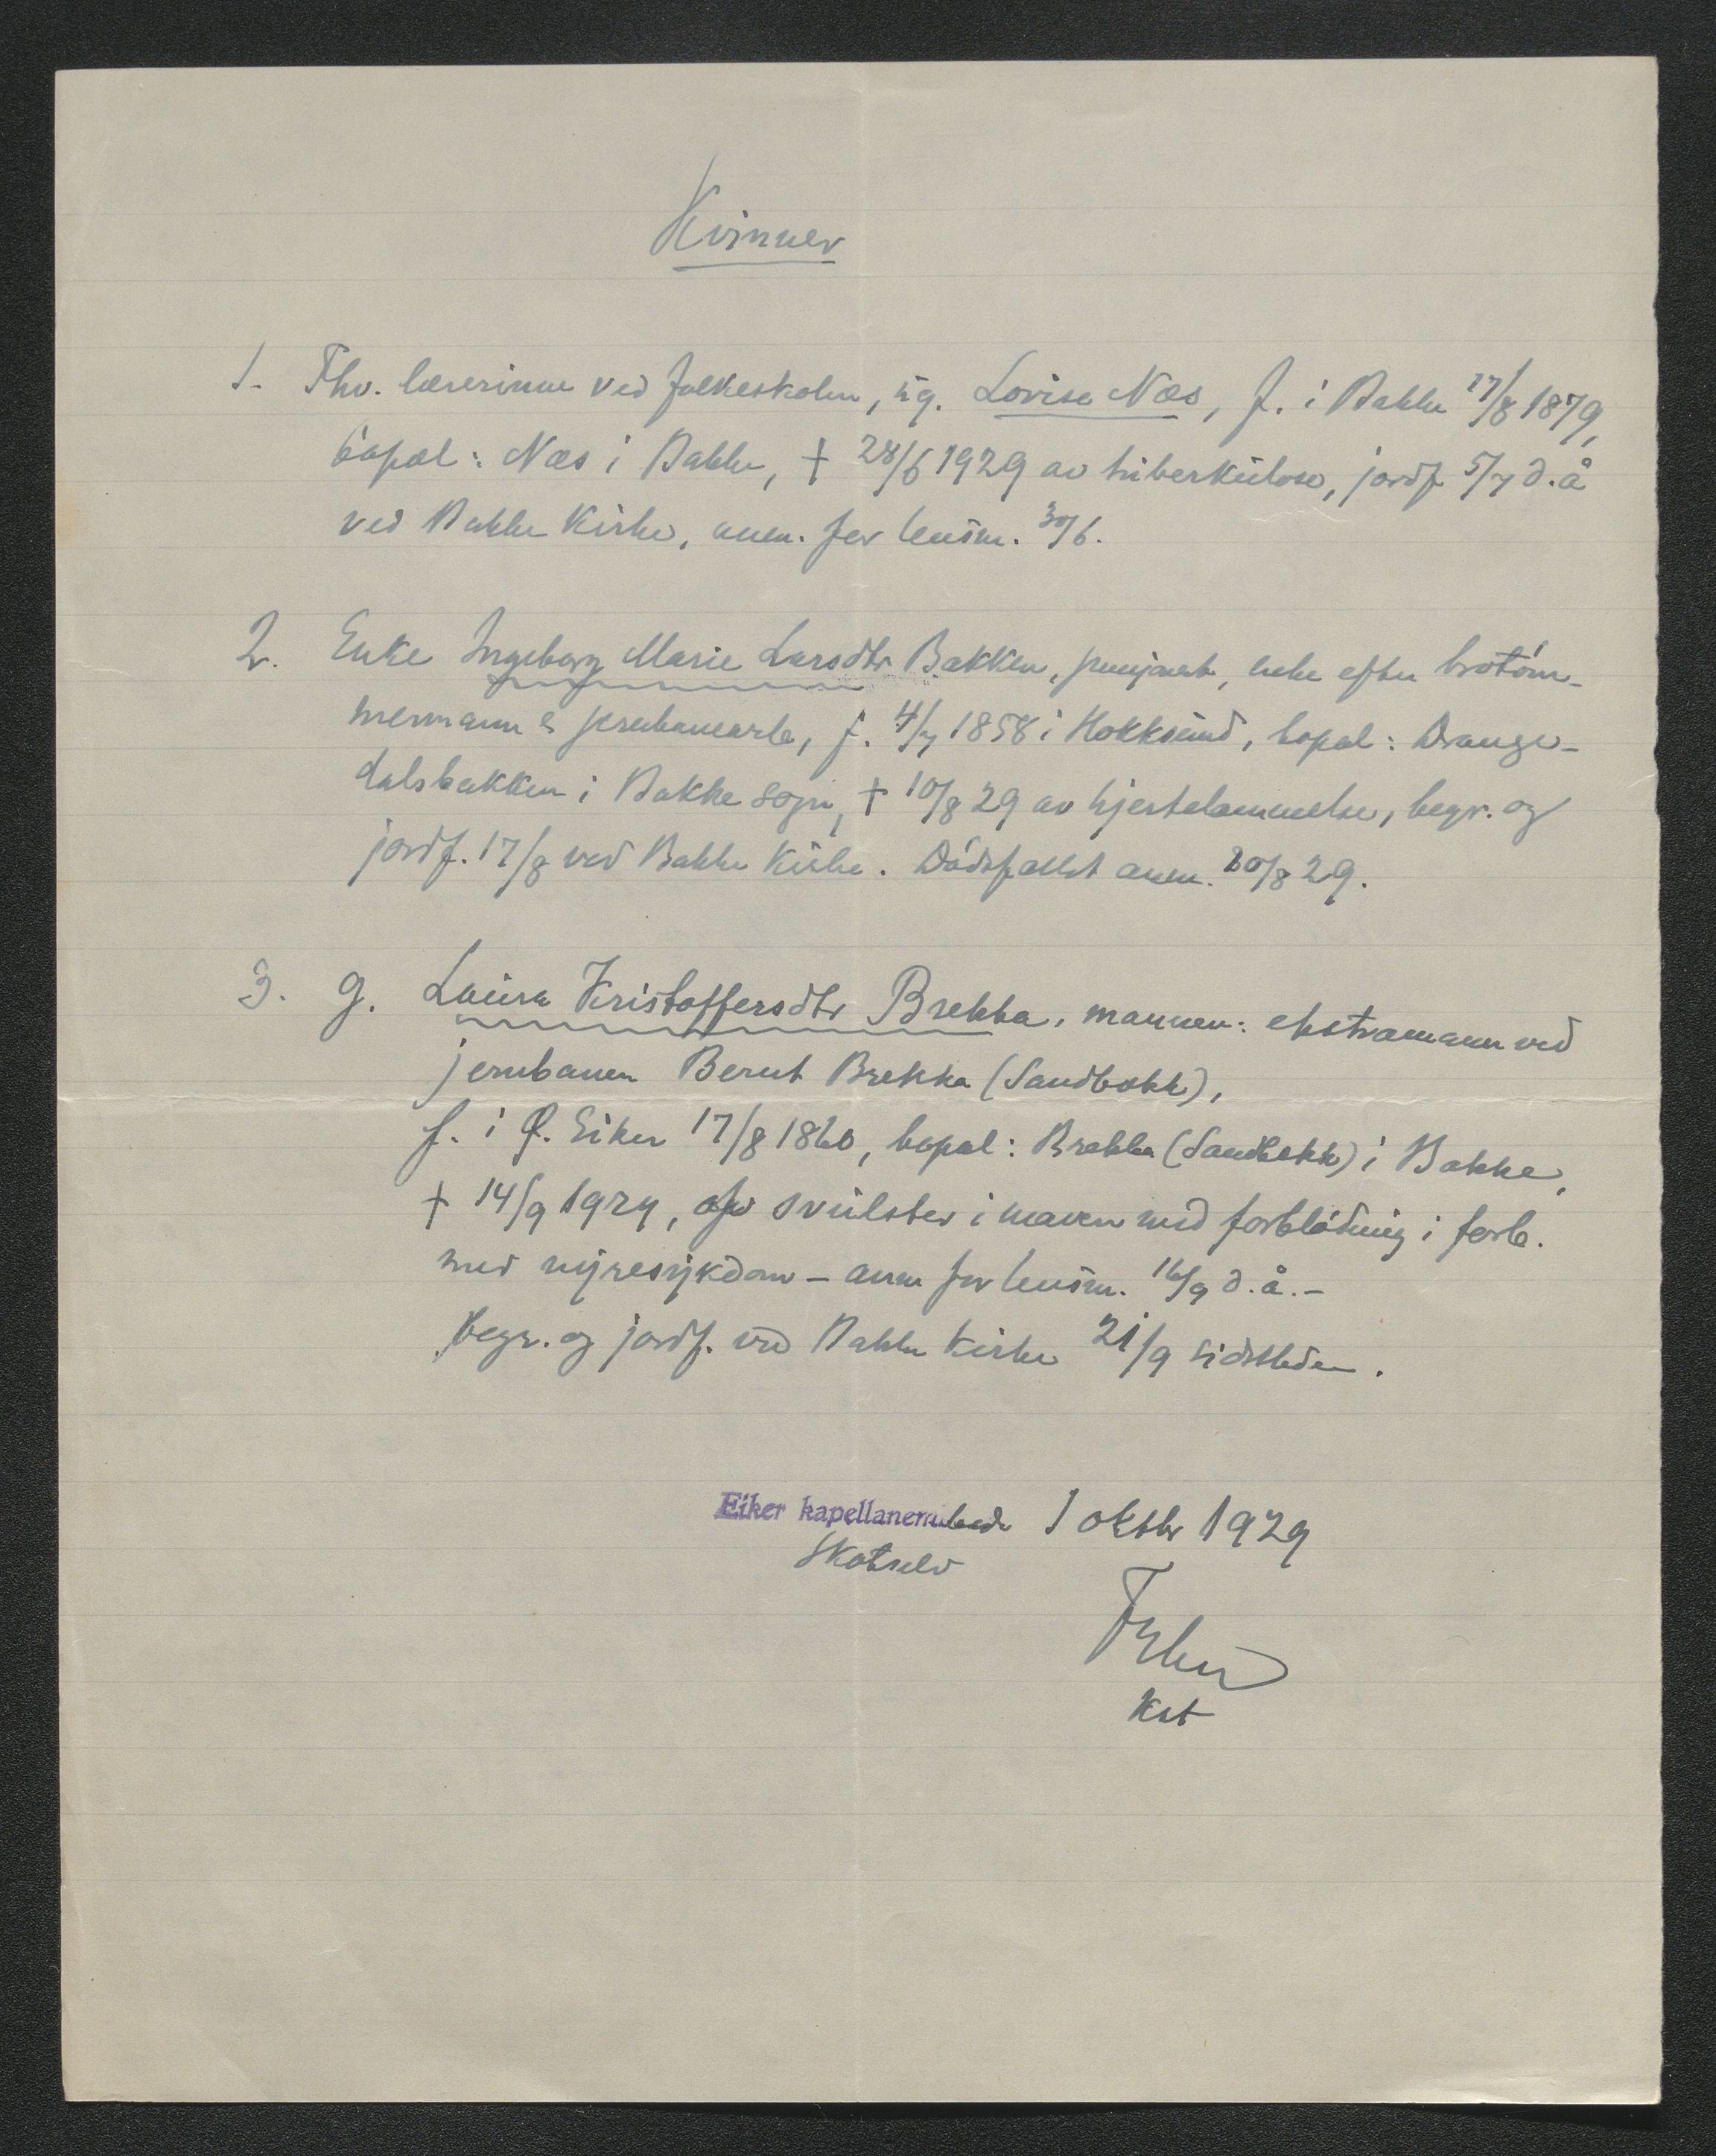 Kvinner
1. Fhv. lærerinne ved folkeskolen, ug. Lovise Næs, f. i Bakke 17/8 1879,
bopæl: Næs i Bakke, † 28/6 1929 av tuberkulose, jordf 5/7 d.å
ved Bakke Kirke, anm. for lensm. 30/6.
2. Enke Ingeborg Marie Larsdtr Bakken, enke efter brotöm-
mermann & jernbanearb, f. 4/7 1858 i Hokksund, bopæl: Drange-
dalsbakken i Bakke sogn, † 10/8 29 av hjertelammelse, begr. og
jordf. 17/8 ved Bakke Kirke. Dödsfallet anm. 20/8 29.
3. g. Laura Kristoffersdtr Brekka, mannen: ekstramann ved
jernbanen Bernt Brekka (Sandbakk),
f. i Ø. Eiker 17/8 1860, bopæl: Brekka (Sandbakk) i Bakke,
† 14/9 1929, av svulster i maven med forblödning i forb.
med nyresykdom – anm for lensm. 16/9 d.å. –
begr. og jordf. ved Bakke Kirke 21/9 sidstleden.
Eiker kapellanembede 1 oktbr 1929
Skotselv
Kst